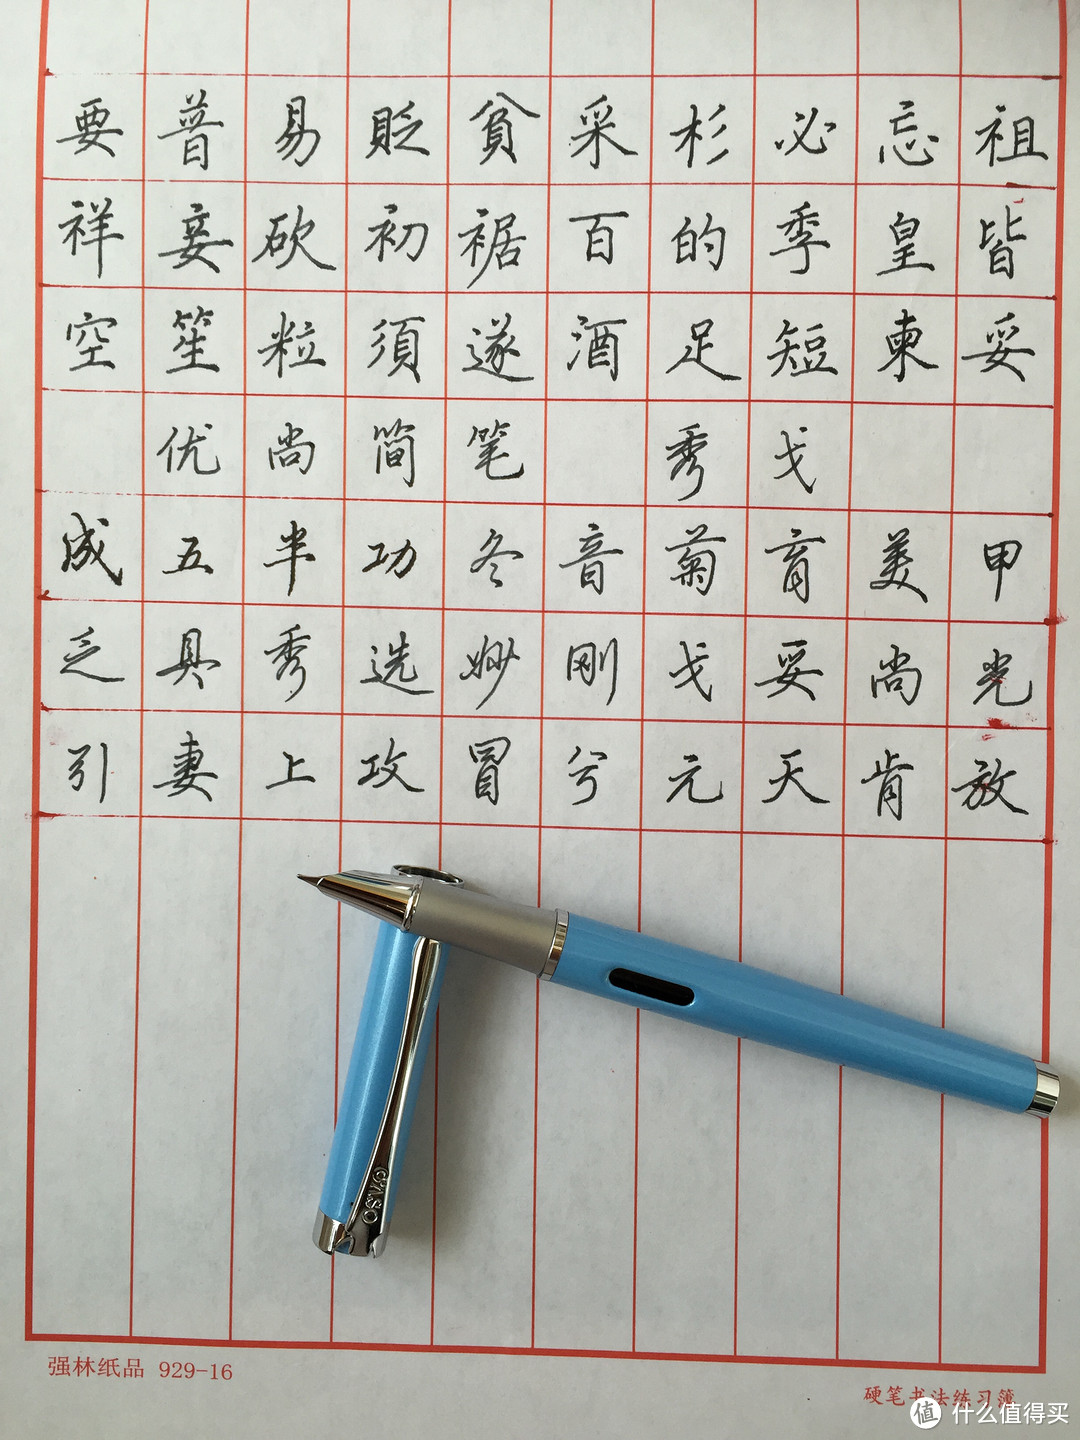 要普易貶貧采杉必忘祖
祥妾砍初裾百的季皇皆
空笙粒須遂酒足短東妥
优尚简笔 秀戈
成五半功冬音菊育美甲
乏具秀选妙刚戈妥尚光
引妻上攻冒兮元天肯放
PICASSO
强林纸品 929-16
硬笔书法练习簿
值 什么值得买